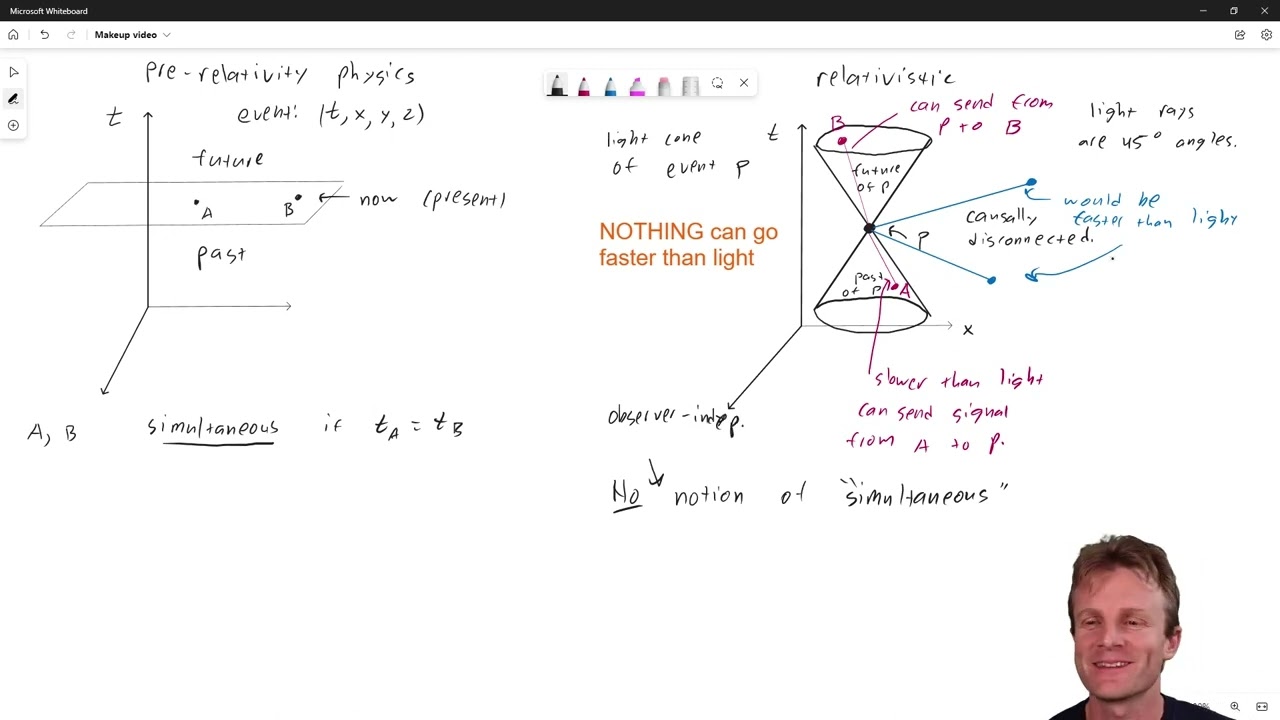 Microsoft Whiteboard
Makeup video
pre-relativity physics
t
event: (t, x, y, z)
future
A
B
now (present)
past
A, B simultaneous if tA = tB
relativistic
light cone
of event p
NOTHING can go
faster than light
t
B
can send from
p to B
light rays
are 45° angles.
future
of p
p
causally
disconnected.
would be
faster than light
past
of p
A
x
slower than light
can send signal
from A to p.
observer-indep.
No notion of "simultaneous"